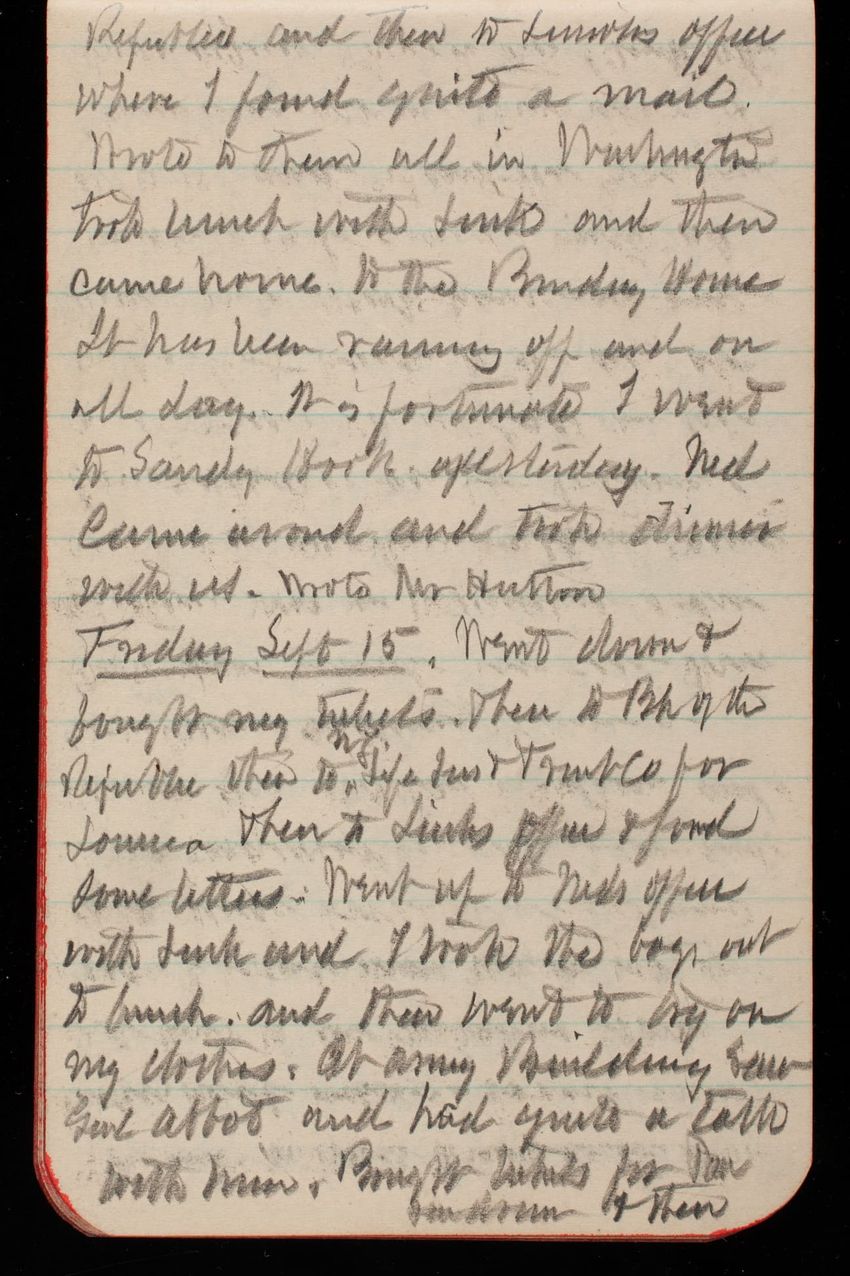 Republic and then to Lincolns office
where I found quite a mail.
Wrote to them all in Washington
took lunch with Link and then
came home. to the Home
It has been raining off and on
all day. It is fortunate I went
to Sandy Hook yesterday. Ned
Came around and took dinner
with us. Wrote Mr Hutton
Friday Sept 15. Went down &
bought my tickets. Then to Bk of the
Republic then to NY. Life Ins & Trust Co for
Louisa Then to Links office & found
some letters. Went up to Neds office
with Link and I took the boys out
to lunch. and then went to try on
my clothes. At army Building saw
Genl Abbot and had quite a talk
with him. Bought tickets for
& then